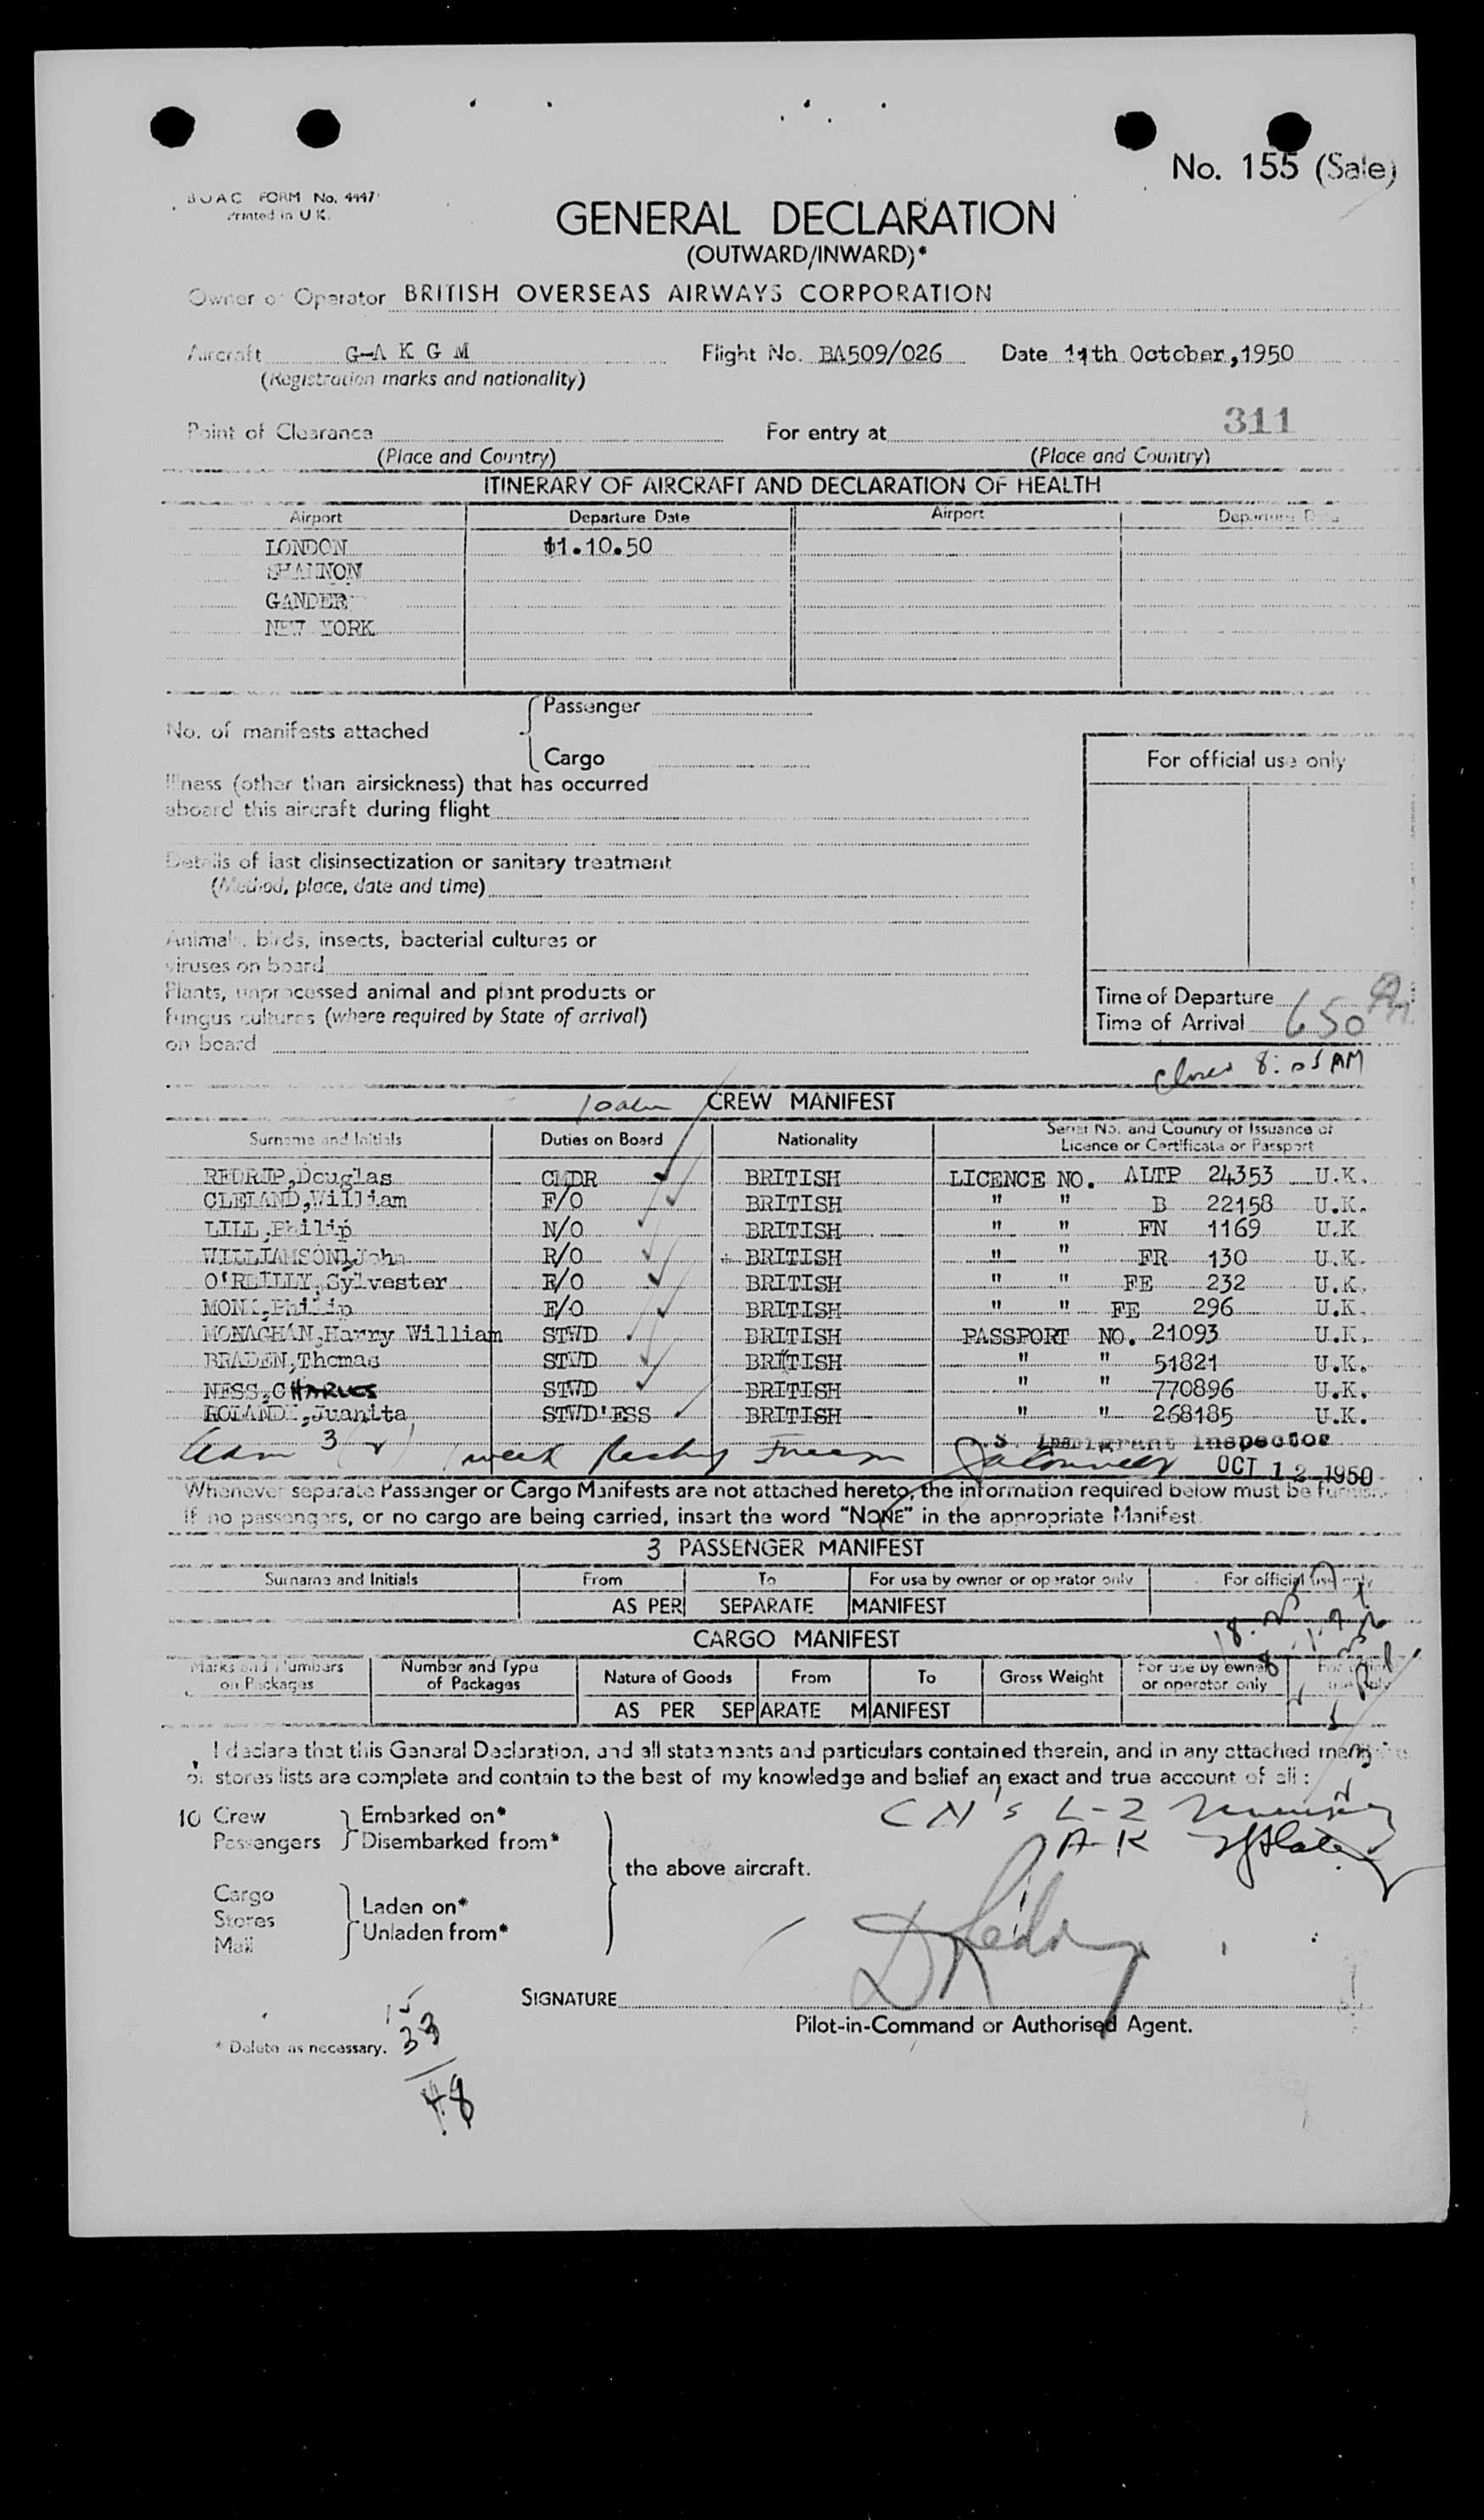 No. 155 (Sale)
BOAC FORM No. 4447
Printed in U.K.
GENERAL DECLARATION
(OUTWARD/INWARD)*
Owner or Operator BRITISH OVERSEAS AIRWAYS CORPORATION
Aircraft G-A K G M Flight No. BA509/026 Date 11th October, 1950
(Registration marks and nationality)
311
Point of Clearance For entry at
(Place and Country) (Place and Country)
ITINERARY OF AIRCRAFT AND DECLARATION OF HEALTH
Airport Departure Date Airport Departure Date
LONDON 11.10.50
SHANNON
GANDER
NEW YORK
Passenger
No. of manifests attached
Cargo
For official use only
Illness (other than airsickness) that has occurred
aboard this aircraft during flight
Details of last disinsectization or sanitary treatment
(Method, place, date and time)
Animals, birds, insects, bacterial cultures or
viruses on board
Plants, unprocessed animal and plant products or
fungus cultures (where required by State of arrival)
on board
Time of Departure
Time of Arrival 650 AM
closed 8:05 AM
CREW MANIFEST
Surname and Initials Duties on Board Nationality Serial No. and Country of Issuance of Licence or Certificate or Passport
REDRUP, Douglas CMDR BRITISH LICENCE NO. ALTP 24353 U.K.
CLELAND, William F/O BRITISH " " B 22158 U.K.
LILL, Philip N/O BRITISH " " FN 1169 U.K.
WILLIAMSON, John R/O BRITISH " " FR 130 U.K.
O'REILLY, Sylvester E/O BRITISH " " FE 232 U.K.
MONK, Philip E/O BRITISH " " FE 296 U.K.
MONAGHAN, Harry William STWD BRITISH PASSPORT NO. 21093 U.K.
BRADEN, Thomas STWD BRITISH " " 51821 U.K.
NESS, CHARLES STWD BRITISH " " 770896 U.K.
Juanita STWD'ESS BRITISH " " 268185 U.K.
Immigrant Inspector
OCT 12 1950
Whenever separate Passenger or Cargo Manifests are not attached hereto, the information required below must be furnished.
If no passengers, or no cargo are being carried, insert the word "NONE" in the appropriate Manifest.
3 PASSENGER MANIFEST
Surname and Initials From To For use by owner or operator only For official use only
AS PER SEPARATE MANIFEST
CARGO MANIFEST
Marks and Numbers on Packages Number and Type of Packages Nature of Goods From To Gross Weight For use by owner or operator only For official use only
AS PER SEPARATE MANIFEST
I declare that this General Declaration, and all statements and particulars contained therein, and in any attached manifests
or stores lists are complete and contain to the best of my knowledge and belief an exact and true account of all :
10 Crew Embarked on*
Passengers Disembarked from*
the above aircraft.
Cargo
Stores
Mail
Laden on*
Unladen from*
SIGNATURE
Pilot-in-Command or Authorised Agent.
* Delete as necessary.
15
33
48